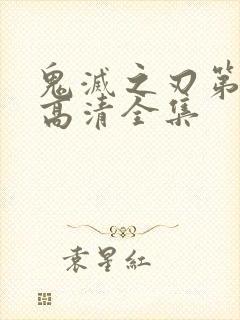 鬼滅之刃第
高清全集
袁星紅